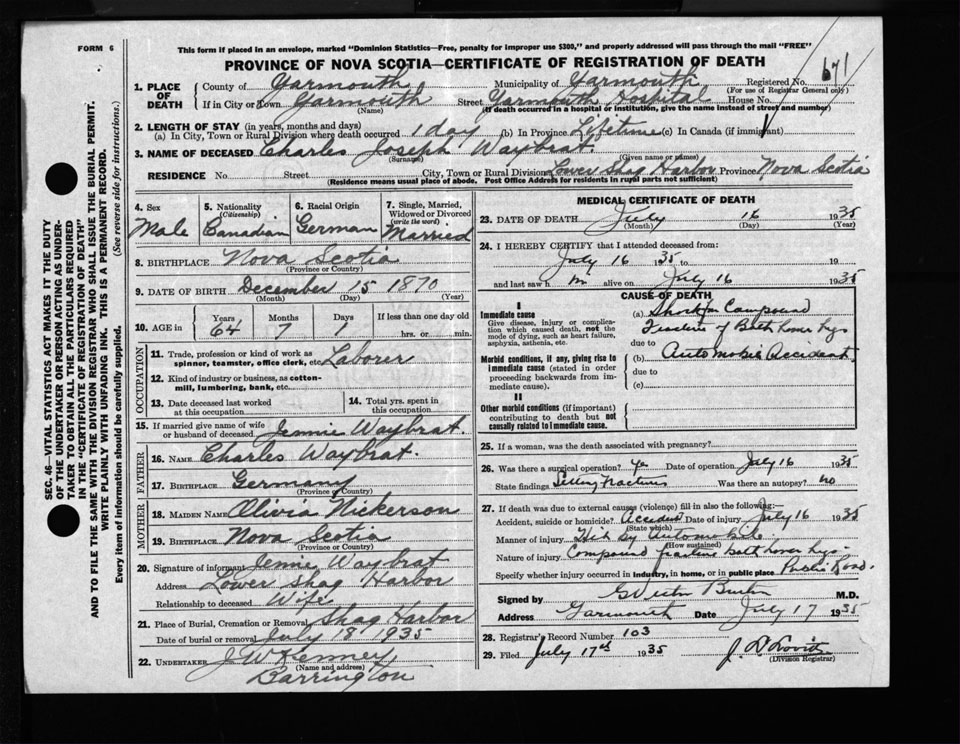 FORM 6
This form if placed in an envelope, marked "Dominion Statistics—Free, penalty for improper use $300," and properly addressed will pass through the mail "FREE"
PROVINCE OF NOVA SCOTIA—CERTIFICATE OF REGISTRATION OF DEATH
671
1. PLACE OF DEATH
County of Yarmouth Municipality of Yarmouth Registered No.
(For use of Registrar General only)
If in City or Town Yarmouth Street Yarmouth Hospital House No.
(Name) (If death occurred in a hospital or institution, give the name instead of street and number)
2. LENGTH OF STAY (in years, months and days)
(a) In City, Town or Rural Division where death occurred 1 day (b) In Province Lifetime (c) In Canada (if immigrant)
3. NAME OF DECEASED Charles Joseph Waybrat.
(Surname) (Given name or names)
RESIDENCE No. Street City, Town or Rural Division Lower Shag Harbor Province Nova Scotia
(Residence means usual place of abode. Post Office Address for residents in rural parts not sufficient)
4. Sex
Male
5. Nationality (Citizenship)
Canadian
6. Racial Origin
German
7. Single, Married, Widowed or Divorced (write the word)
Married
8. BIRTHPLACE Nova Scotia
(Province or Country)
9. DATE OF BIRTH December 15 1870
(Month) (Day) (Year)
10. AGE in
Years Months Days If less than one day old
64 7 1 hrs. or min.
OCCUPATION
11. Trade, profession or kind of work as spinner, teamster, office clerk, etc. Laborer
12. Kind of industry or business, as cotton-mill, lumbering, bank, etc.
13. Date deceased last worked at this occupation
14. Total yrs. spent in this occupation
15. If married give name of wife or husband of deceased Jennie Waybrat.
FATHER
16. NAME Charles Waybrat.
17. BIRTHPLACE Germany
(Province or Country)
MOTHER
18. MAIDEN NAME Olivia Nickerson
19. BIRTHPLACE Nova Scotia
(Province or Country)
20. Signature of informant Jennie Waybrat
Address Lower Shag Harbor
Relationship to deceased Wife
21. Place of Burial, Cremation or Removal Shag Harbor
Date of burial or removal July 18 1935
22. UNDERTAKER J W Kenney
(Name and address)
Barrington
MEDICAL CERTIFICATE OF DEATH
23. DATE OF DEATH July 16 1935
(Month) (Day) (Year)
24. I HEREBY CERTIFY that I attended deceased from:
July 16 1935 to 19
and last saw h im alive on July 16 1935
CAUSE OF DEATH
I
Immediate cause
Give disease, injury or complication which caused death, not the mode of dying, such as heart failure, asphyxia, asthenia, etc.
(a) Shock from Compound
Fracture of Both Lower legs
due to
Morbid conditions, if any, giving rise to immediate cause (stated in order proceeding backwards from immediate cause).
(b) Automobile Accident
due to
(c)
II
Other morbid conditions (if important) contributing to death but not causally related to immediate cause.
25. If a woman, was the death associated with pregnancy?
26. Was there a surgical operation? Yes Date of operation July 16 1935
State findings Setting Fractures Was there an autopsy? no
27. If death was due to external causes (violence) fill in also the following:
Accident, suicide or homicide? Accident Date of injury July 16 1935
(State which)
Manner of injury Hit by Automobile
(How sustained)
Nature of injury Compound fracture both lower legs
Specify whether injury occurred in industry, in home, or in public place Public Road.
Signed by M.D.
Address Yarmouth Date July 17 1935
28. Registrar's Record Number 103
29. Filed July 17th 1935
(Division Registrar)
SEC. 46—VITAL STATISTICS ACT MAKES IT THE DUTY
OF THE UNDERTAKER OR PERSON ACTING AS UNDER-
TAKER TO OBTAIN ALL THE PARTICULARS REQUIRED
IN THE "CERTIFICATE OF REGISTRATION OF DEATH"
AND TO FILE THE SAME WITH THE DIVISION REGISTRAR WHO SHALL ISSUE THE BURIAL PERMIT.
WRITE PLAINLY WITH UNFADING INK. THIS IS A PERMANENT RECORD.
Every item of information should be carefully supplied. (See reverse side for instructions.)